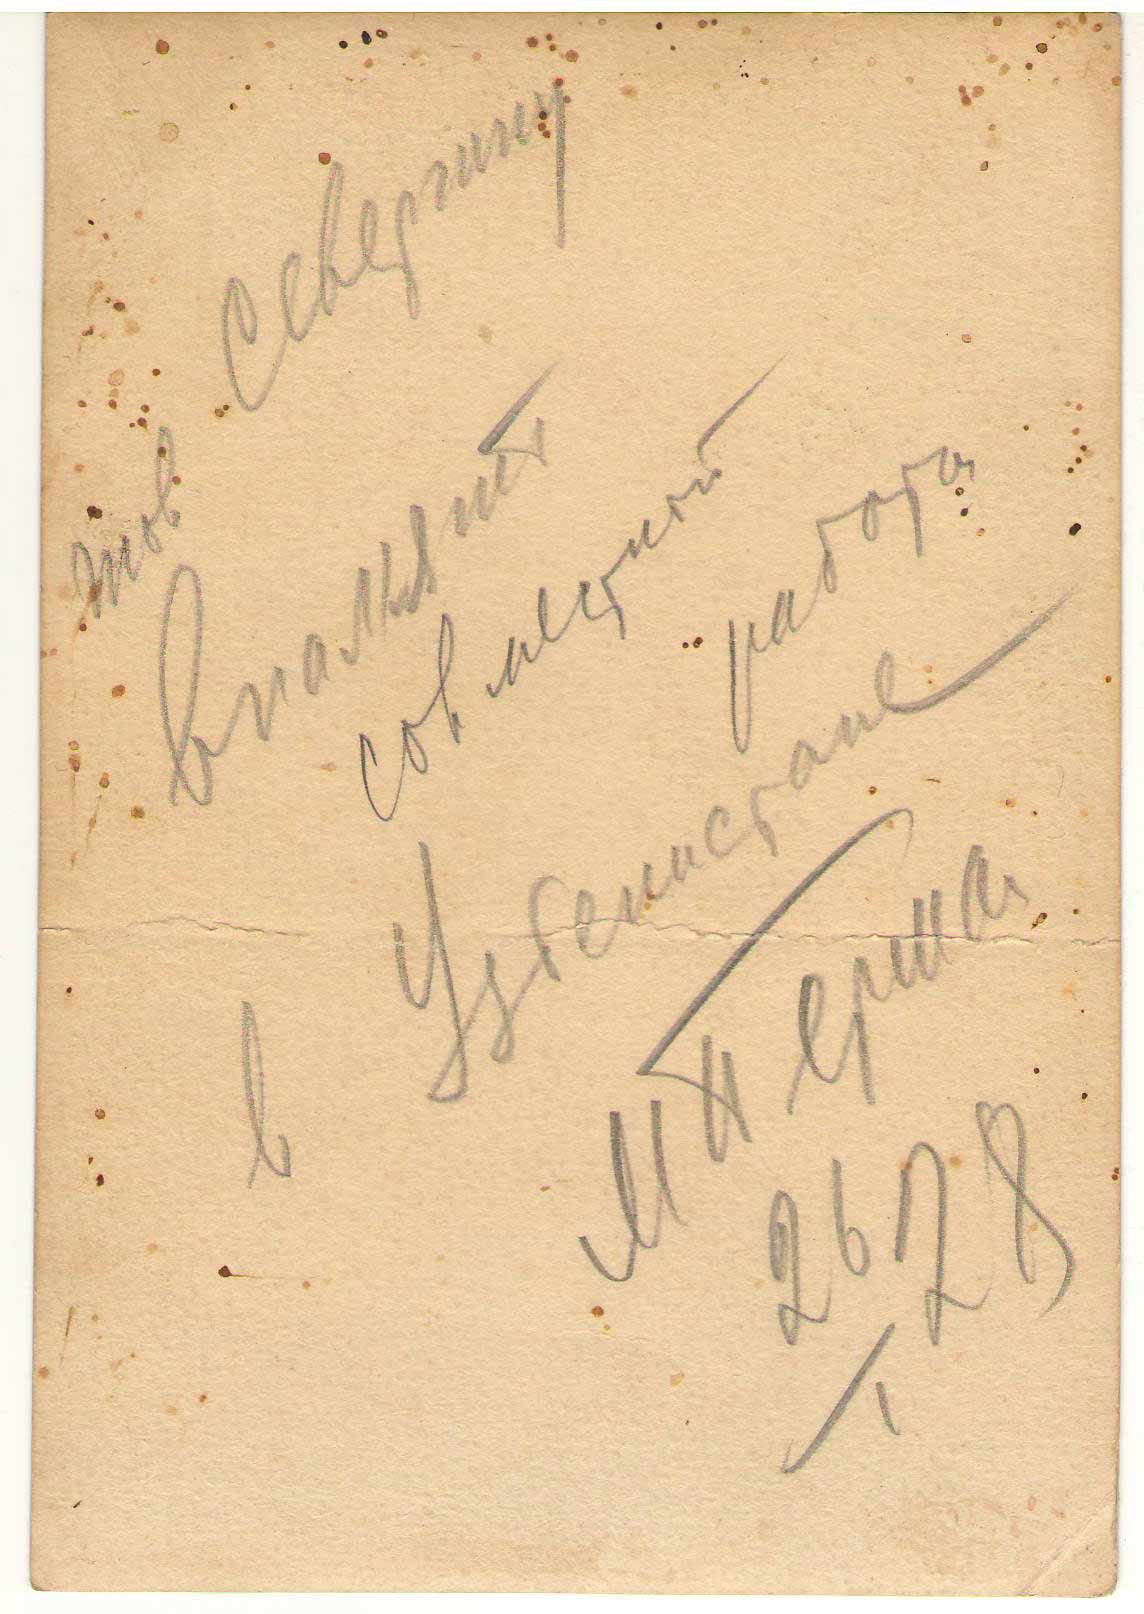 тов Севергину
В память
совместной
работы
в Узбекистане
26 28
I